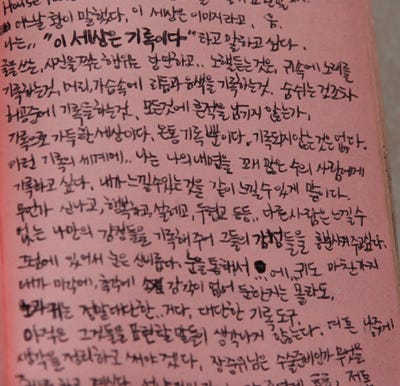 House
옛날 형이 말했다, 이 세상은 이미지라고. 음,
나는,, "이 세상은 기록이다" 라고 말하고 싶다.
글을 쓰는, 사진을 찍는 행위는 당연하고.. 노래를 듣는것은, 귀속에 노래를
기록하는것, 머리,가슴속에 리듬과 음색을 기록하는것. 숨쉬는것조차
허공중에 기록을하는것, 모든것에 흔적을 남기지 않는가,
기록으로 가득한 세상이다. 온통 기록 뿐이다. 기록되지않는것은 없다.
이런 기록의 세계에.. 나는 나의 내면을 꽤 많은 수의 사람에게
기록하고 싶다, 내가 느낄수있는것을 같이 느낄수 있게 말이다.
무언가 신나고, 행복하고, 설레고, 두렵고 등등,, 다른사람은 느낄수
없는 나만의 감정들을 기록해주어 그들의 감정들을 흥분시켜주고싶다.
그점에 있어서 눈은 신비롭다. 눈을 통해서 에,, 귀도 마찬가지
내가 미각에, 촉각에 감각이 없어 둔한지는 몰라도,
눈과 귀는 정말대단한.. 거다, 대단한 기록도구,
아직은 그것들을 표현할 말들이 생각나지 않는다. 여튼 나중에
생각을 정리하고 써야겠다, 장준위님은 수술준비안가 무엇을